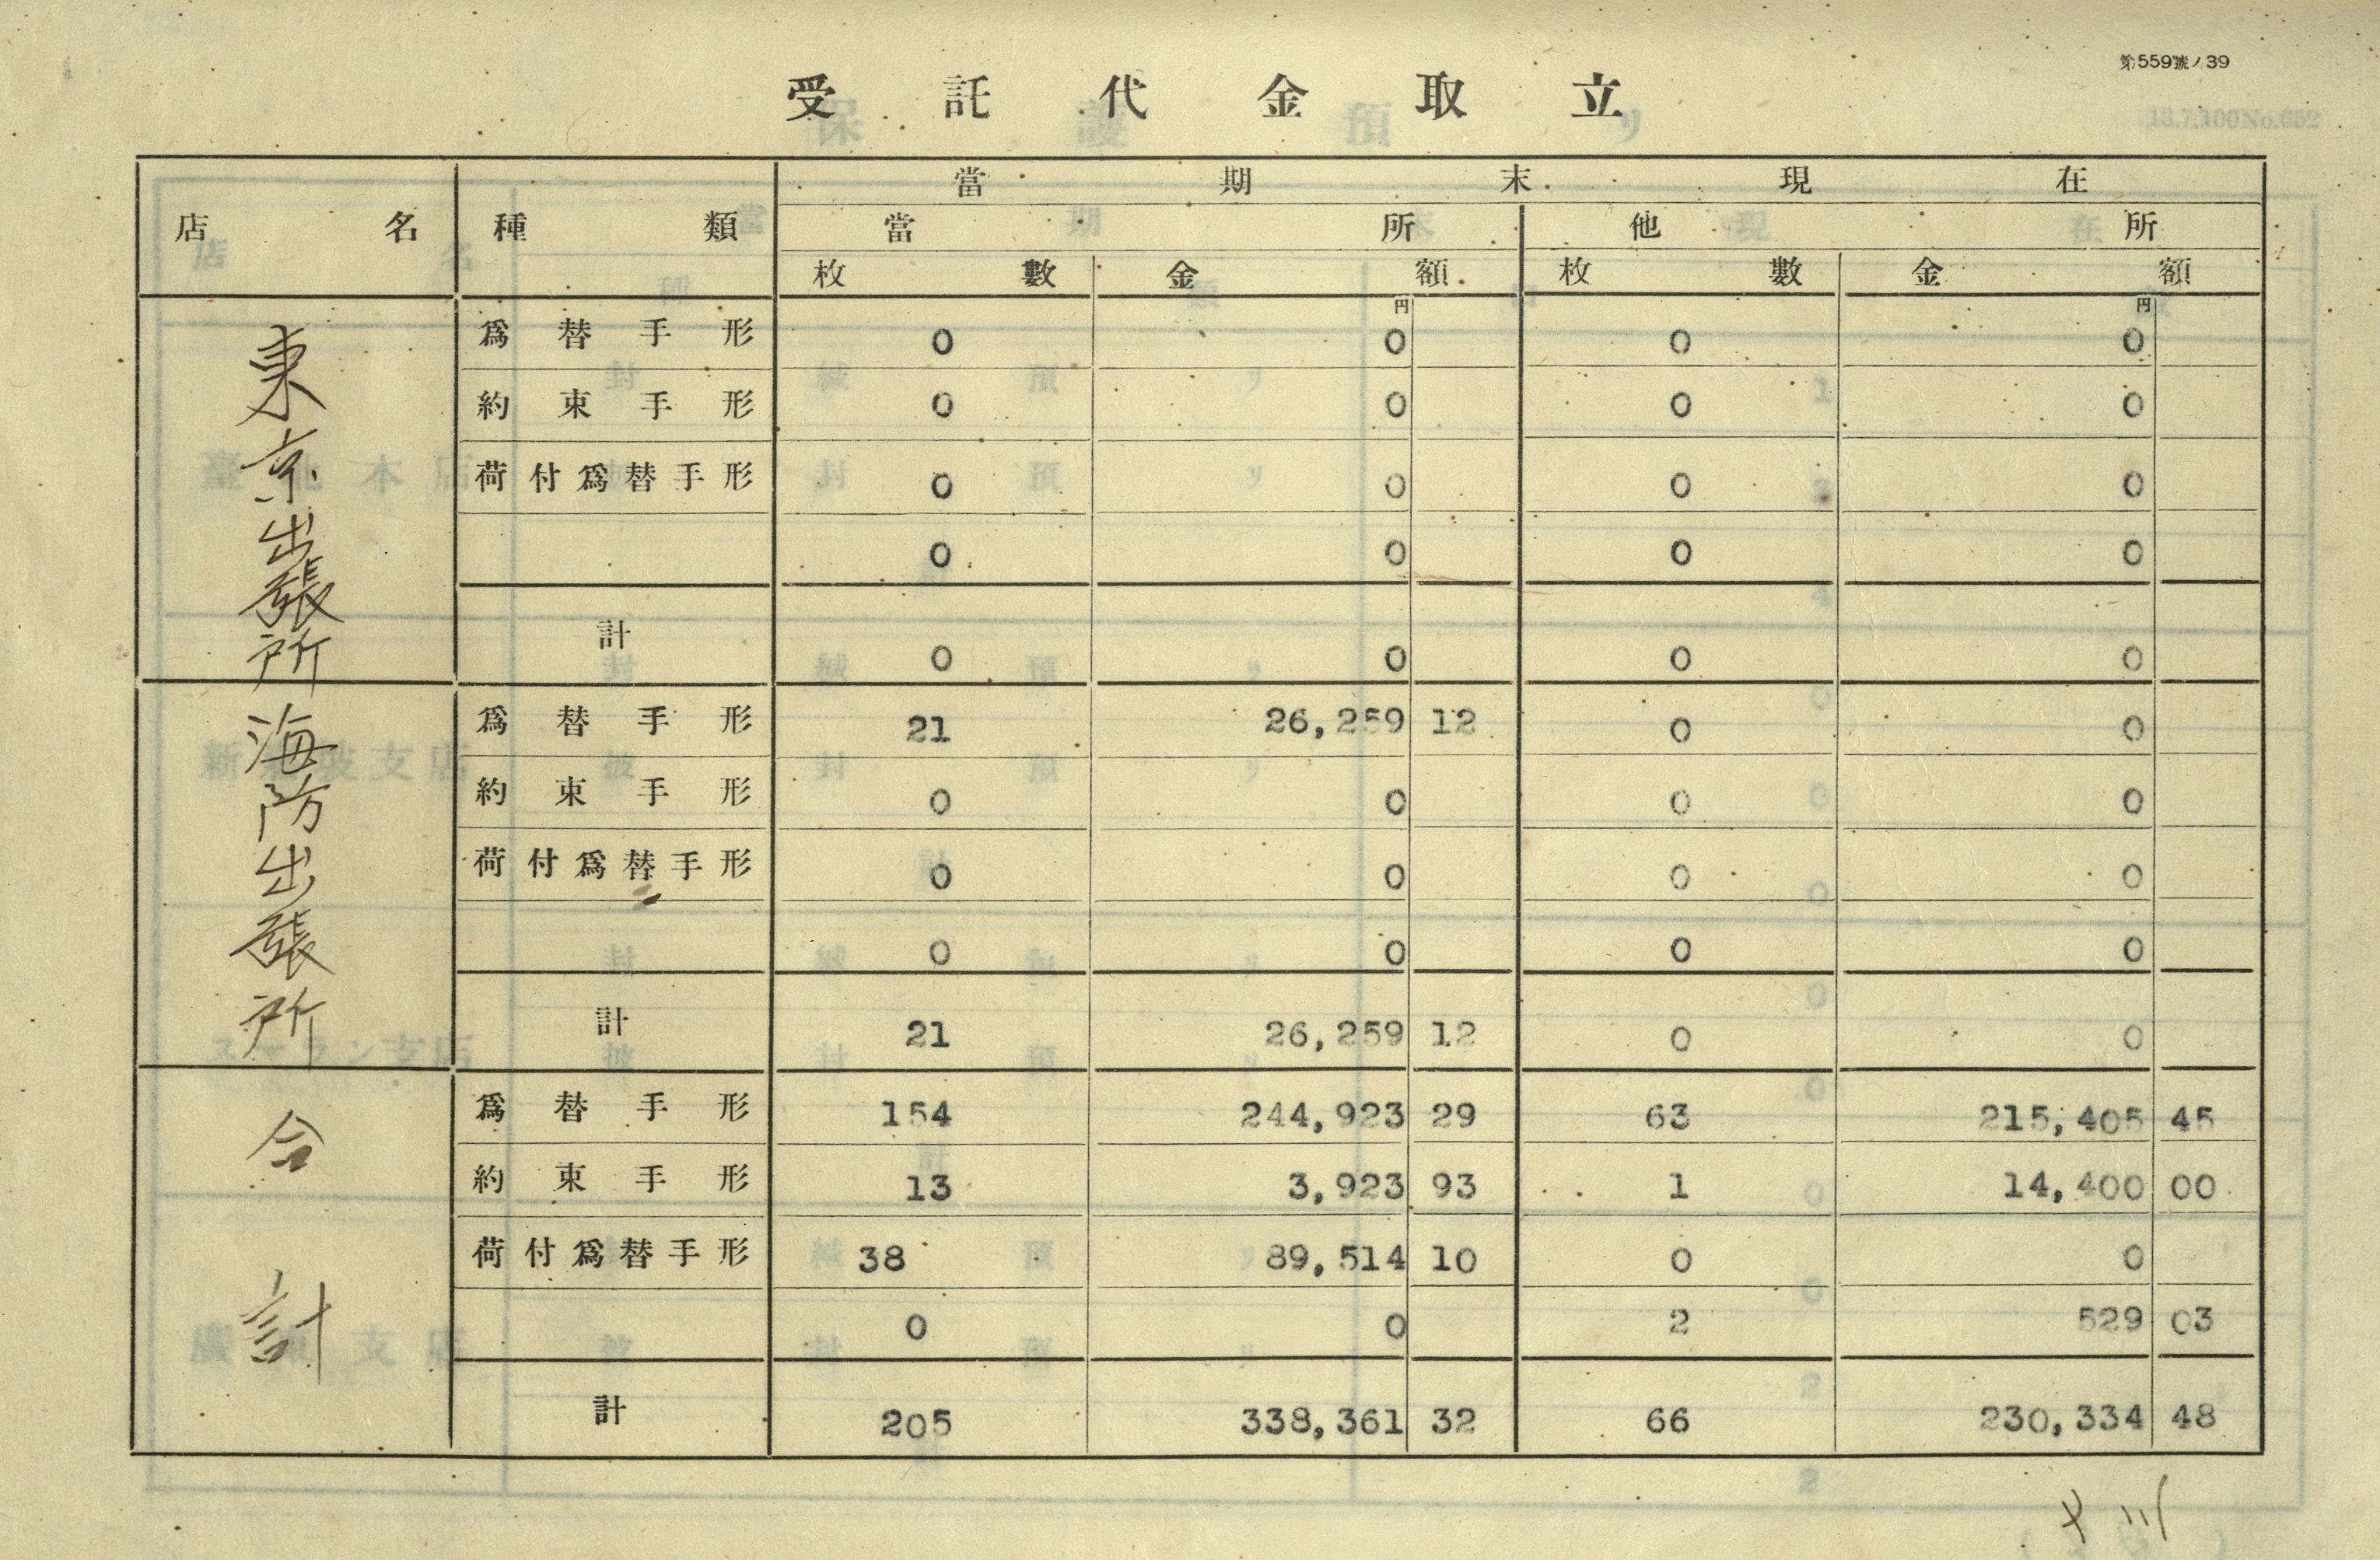 第559號ノ39
受託代金取立
店名 種類 當期末現在
當所 他所
枚數 金額 枚數 金額
円 円
東京出張所
爲替手形 0 0 0 0
約束手形 0 0 0 0
荷付爲替手形 0 0 0 0
0 0 0 0
計 0 0 0 0
海防出張所
爲替手形 21 26,259 12 0 0
約束手形 0 0 0 0
荷付爲替手形 0 0 0 0
0 0 0 0
計 21 26,259 12 0 0
合計
爲替手形 154 244,923 29 63 215,405 45
約束手形 13 3,923 93 1 14,400 00
荷付爲替手形 38 89,514 10 0 0
0 0 2 529 03
計 205 338,361 32 66 230,334 48